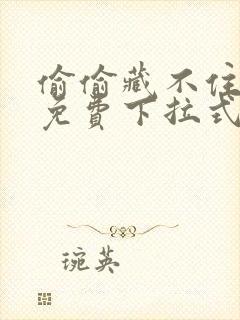 偷偷藏不住
免費下拉式
琬英